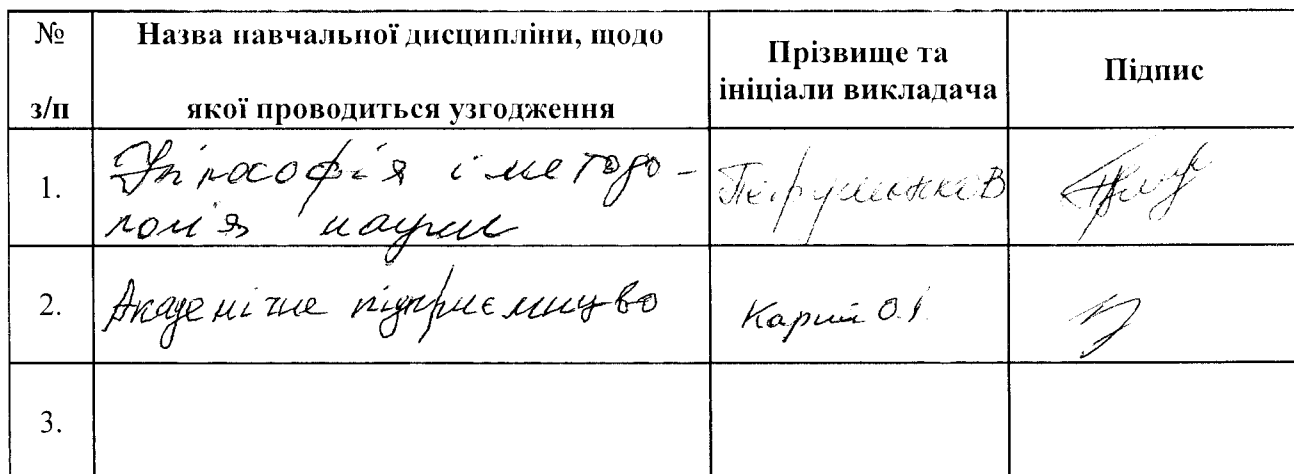 № з/п
Назва навчальної дисципліни, щодо
якої проводиться узгодження
Прізвище та
ініціали викладача
Підпис
1.
Філософія і методо-
логія науки
Петрушенко В
2.
Академічне підприємництво
Карий О.І.
3.